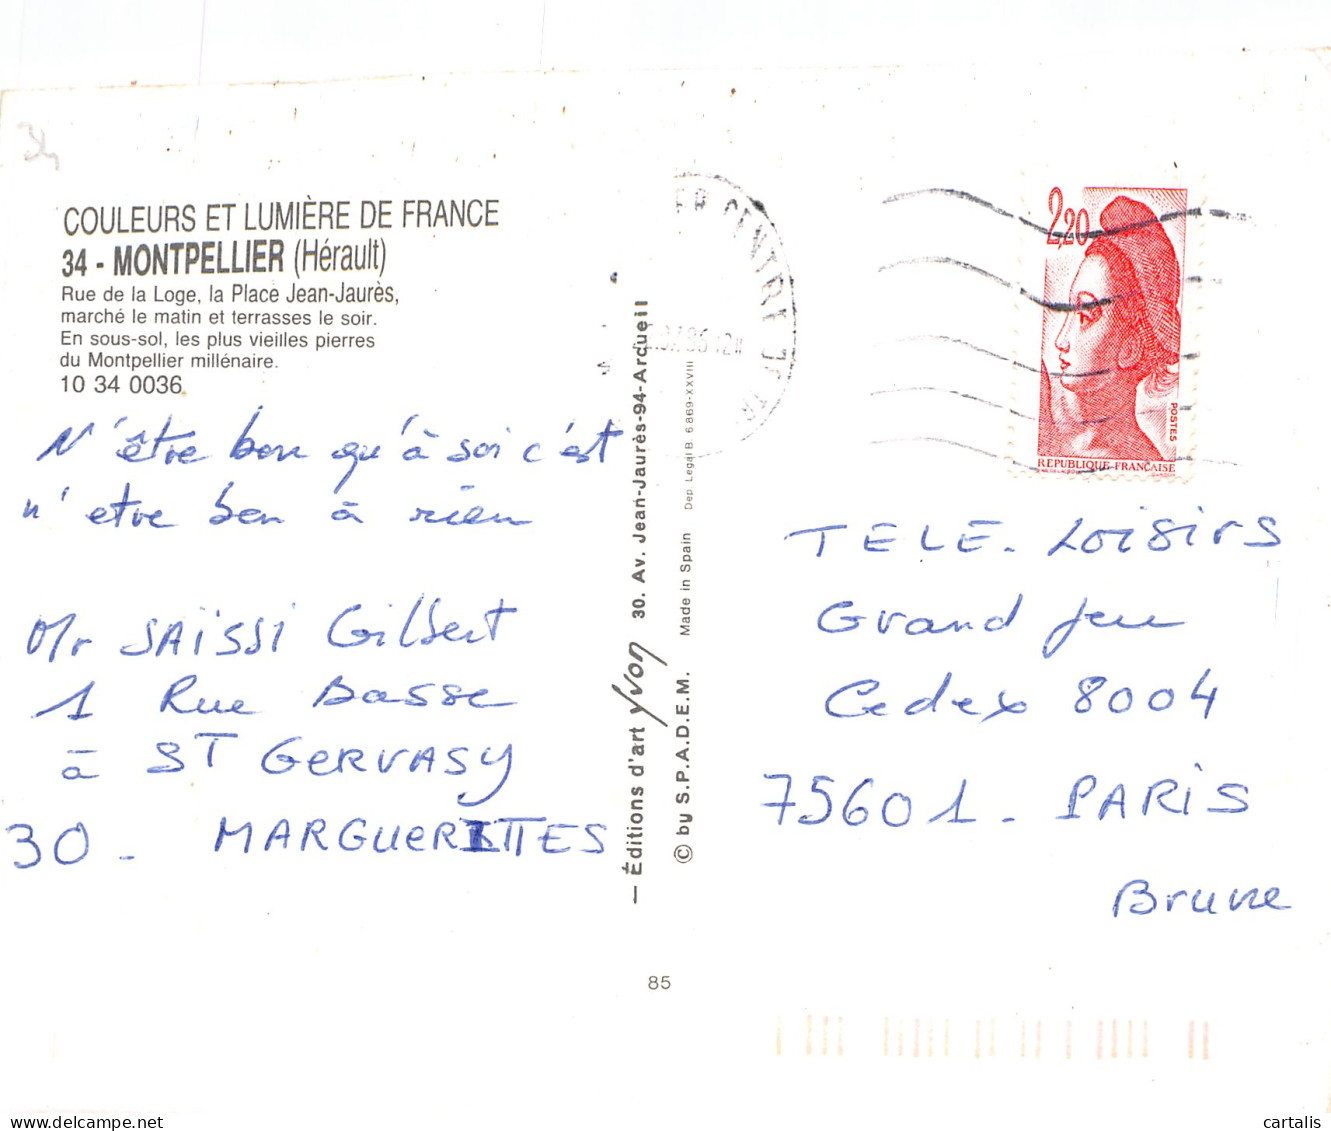 34
COULEURS ET LUMIÈRE DE FRANCE
34 - MONTPELLIER (Hérault)
Rue de la Loge, la Place Jean-Jaurès,
marché le matin et terrasses le soir.
En sous-sol, les plus vieilles pierres
du Montpellier millénaire.
10 34 0036
N'être bon qu'à soi c'est
n'etre bon à rien
Mr SAÏSSI Gilbert
1 Rue Basse
à ST GERVASY
30 - MARGUERITTES
— Éditions d'art Yvon 30. Av. Jean-Jaurès-94-Arcueil
© by S.P.A.D.E.M. Made in Spain Dep. Legal B. 6869-XXVIII
85
ER CENTRE
2,20
POSTES
REPUBLIQUE FRANÇAISE
TELE. LOISIRS
Grand Jeu
Cedex 8004
75601. PARIS
Brune
cartalis